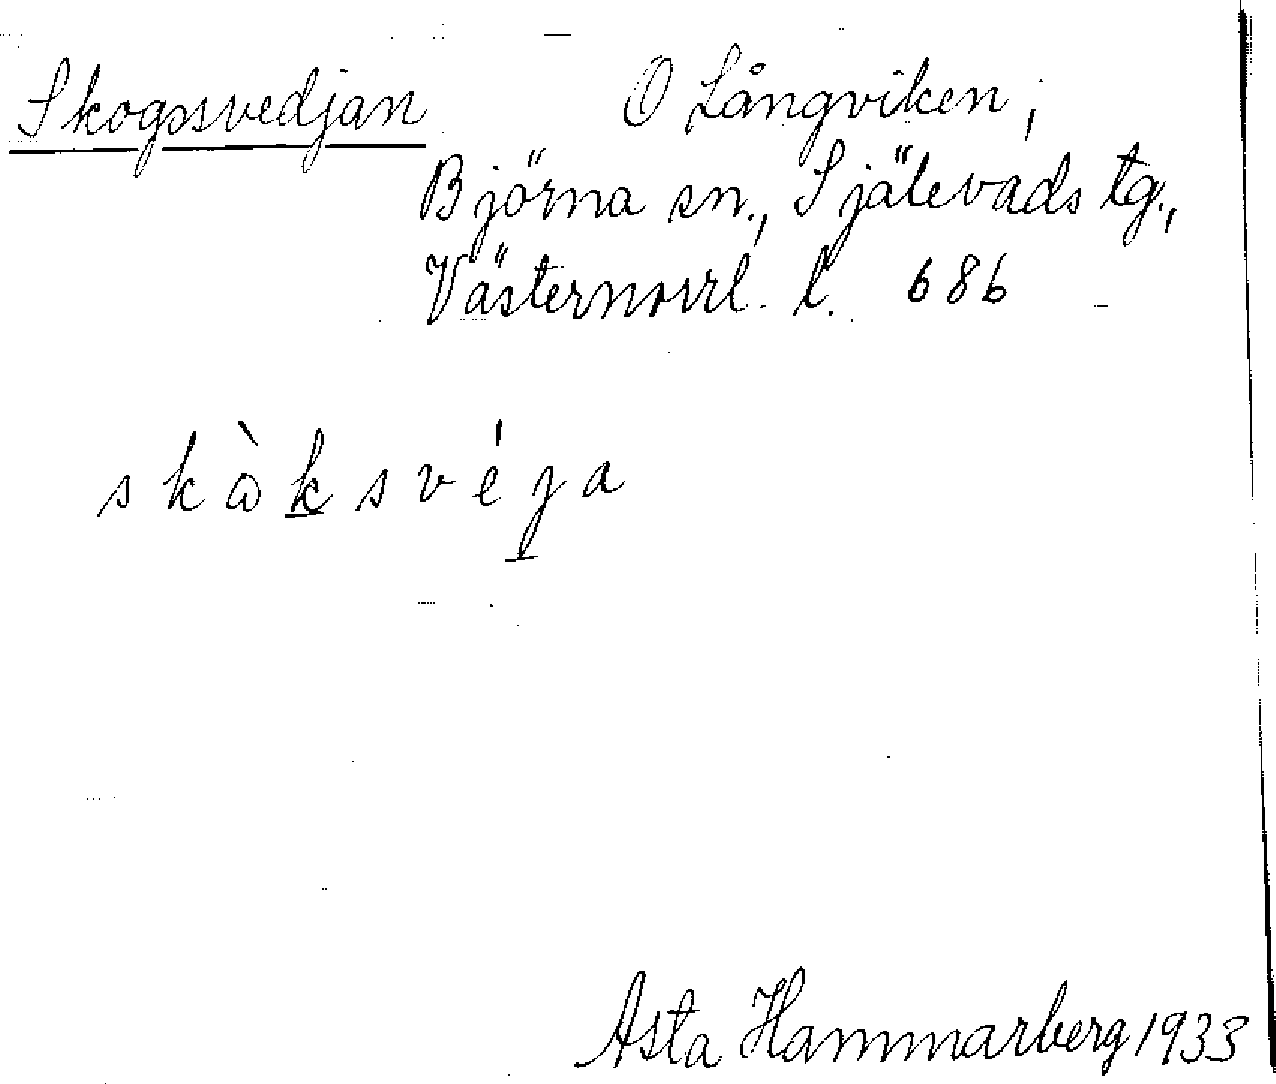 Skogssvedjan O Långviken,
Björna sn., Själevads tg.,
Västernorrl. l. 686
skὼksvéja
Asta Hammarberg 1933